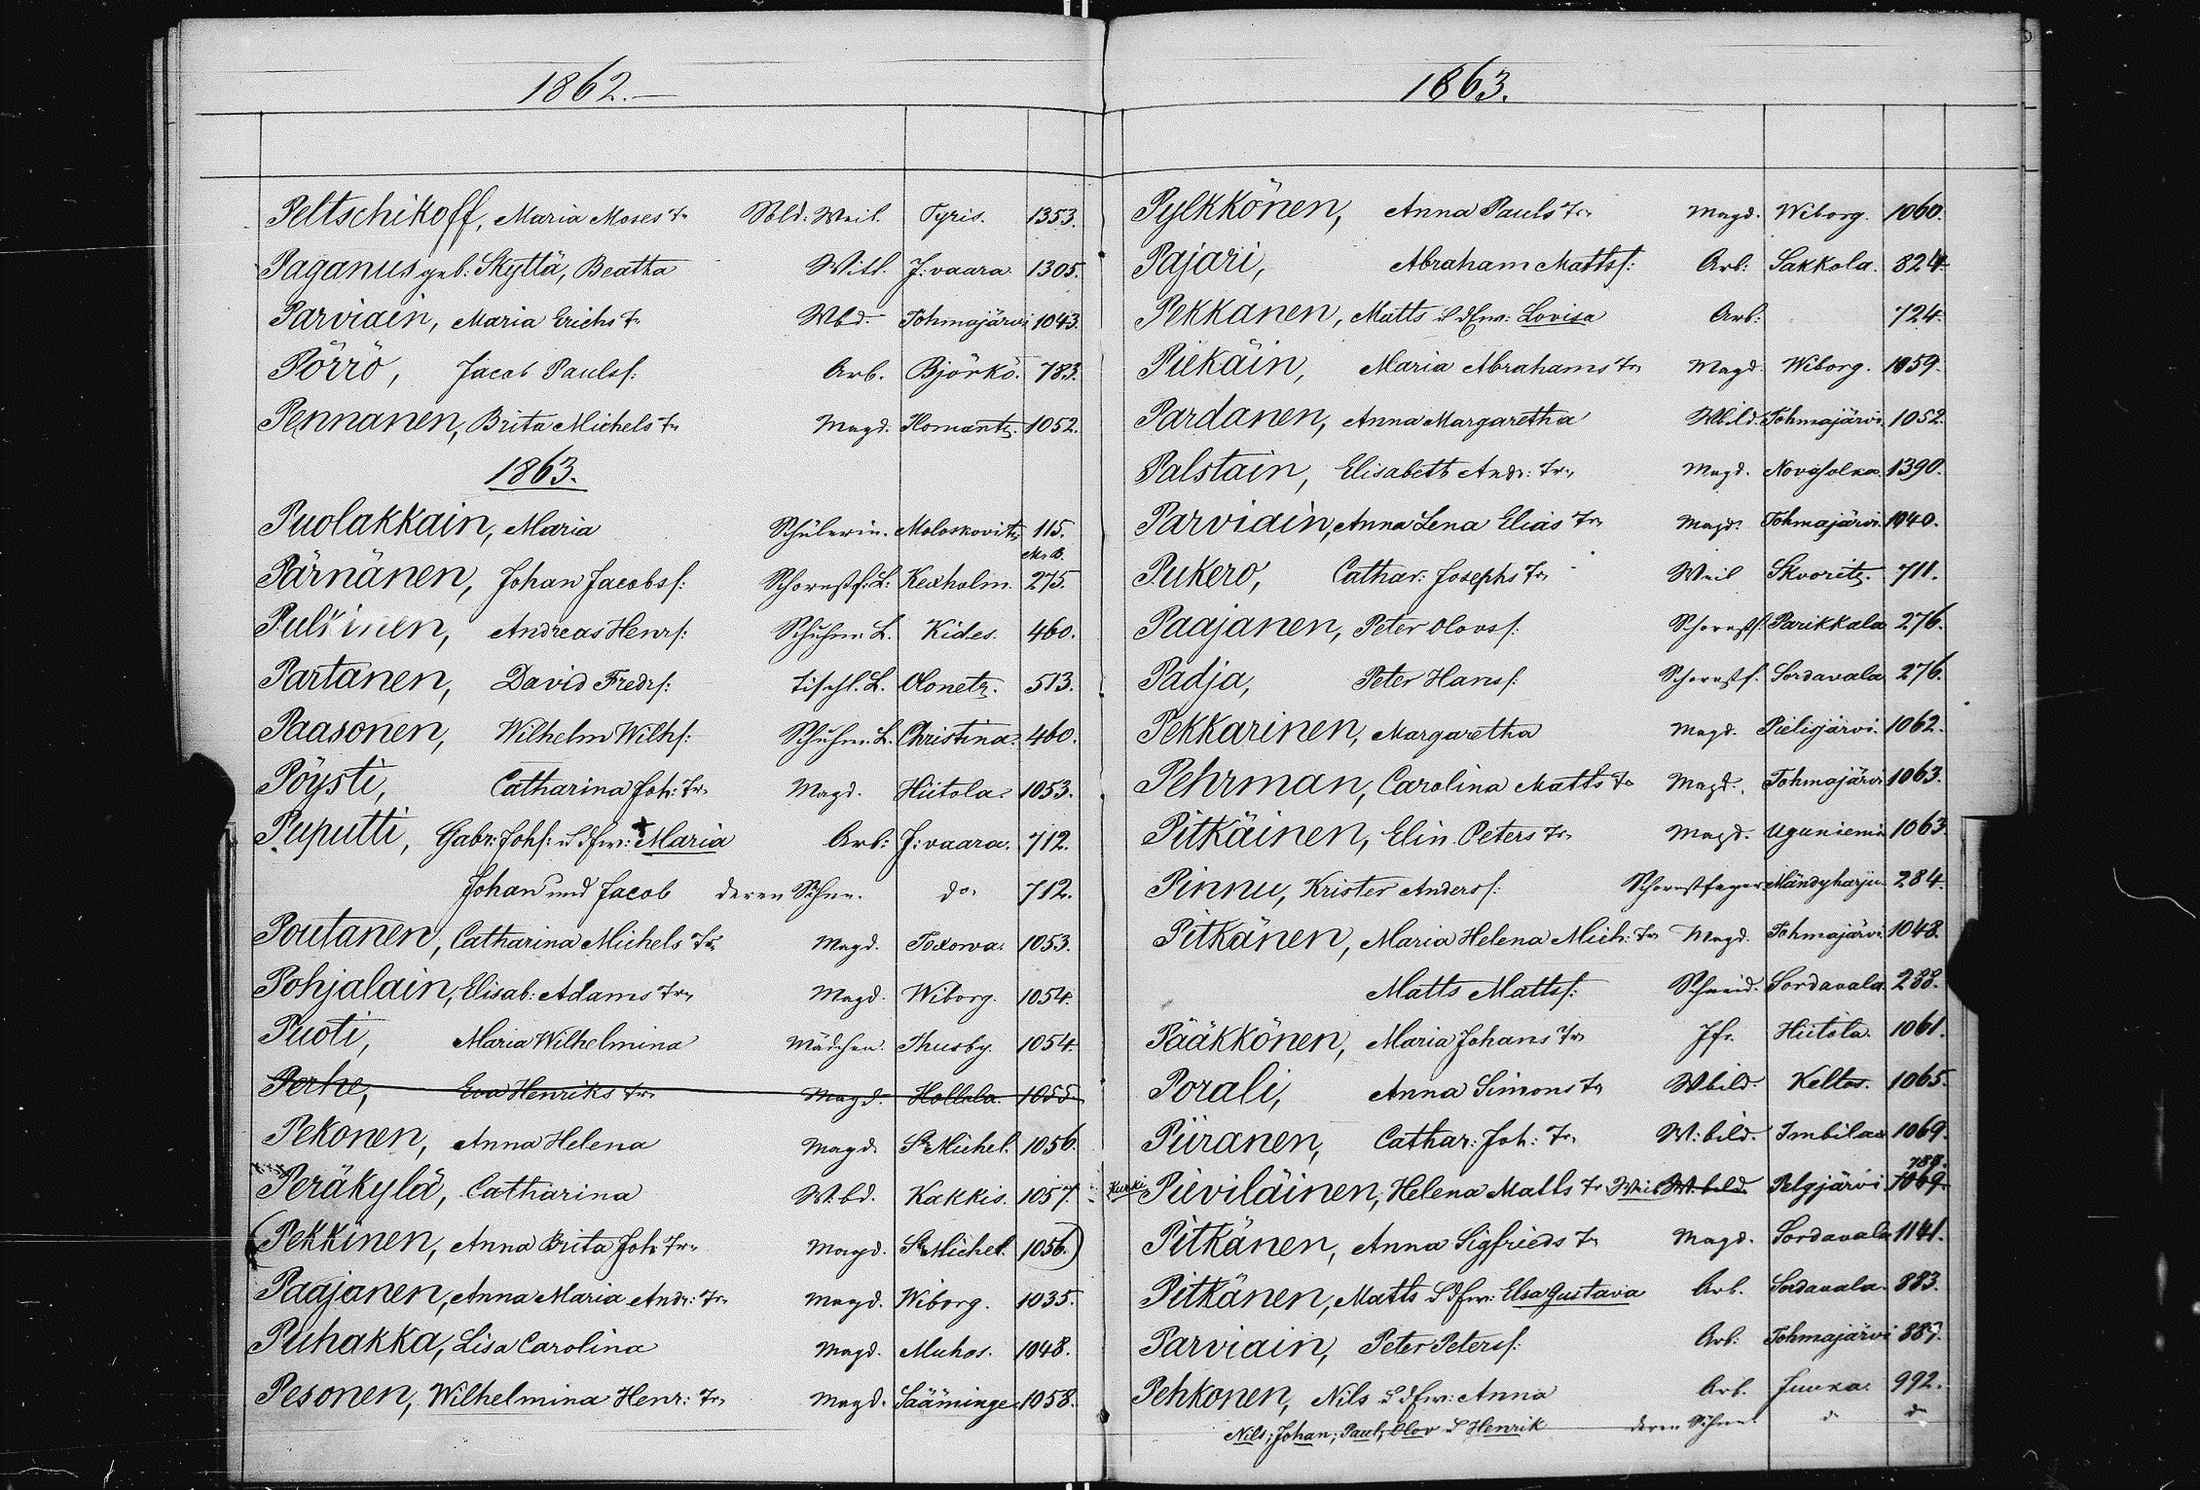 1862.—
Peltschikoff, Maria Moses Tr. Sold: Weib. Tyris. 1353.
Paganus geb: Skyttä, Beatha Witt. J:vaara. 1305.
Parviain, Maria Erichs Tr. Wbd. Tohmajärvi 1043.
Pörrö, Jacob Paulss: Arb. Björkö. 783.
Pennanen, Brita Michels Tr. Magd. Ilomants. 1052.
1863.
Puolakkain, Maria Schülerin. Moloskovitz 115.
M. B.
Pärnänen, Johan Jacobss: Schornstf. L: Kexholm. 275.
Pulkinen, Andreas Henrs: Schuhm. L. Kides. 460.
Partanen, David Fredrs: Tischl. L. Olonetz. 513.
Paasonen, Wilhelm Wilhs: Schuhm. L. Christina. 460.
Pöysti, Catharina Joh: Tr. Magd. Hiitola. 1053.
Puputti, Gabr: Johs: u dfw: Maria Arb: J:vaara. 712.
Johan und Jacob deren Söhne. do. 712.
Poutanen, Catharina Michels Tr. Magd. Toxowa. 1053.
Pohjalain, Elisab: Adams Tr. Magd. Wiborg. 1054.
Puoti, Maria Wilhelmina Mädchen. Thusby. 1054.
Perhe, Eva Henriks Tr. Magd. Hollola. 1055.
Pekonen, Anna Helena Magd. St Michel. 1056.
Peräkylä, Catharina W.bd. Kakkis. 1057.
(Pekkinen, Anna Brita Joh Tr. Magd. St Michel. 1056.)
Paajanen, Anna Maria Andr: Tr. Magd. Wiborg. 1035.
Puhakka, Lisa Carolina Magd. Muhos. 1048.
Pesonen, Wilhelmina Henr: Tr. Magd. Sääminge 1058.
1863.
Pylkkönen, Anna Pauls Tr. Magd. Wiborg. 1060.
Pajari, Abraham Mattss: Arb: Sakkola. 824.
Pekkanen, Matts u dfw: Lovisa Arb: 724.
Piekäin, Maria Abrahams Tr. Magd. Wiborg. 1059.
Pardanen, Anna Margaretha Wbild. Tohmajärvi. 1052.
Palstain, Elisabeth Andr: Tr. Magd. Novosolka. 1390.
Parviain, Anna Lena Elias Tr. Magd. Tohmajärvi. 1040.
Pukero, Cathar: Josephs Tr. Weib Skvoritz. 711.
Paajanen, Peter Olovss: Schornstf. Parikkala 276.
Padja, Peter Hanss: Schornstf. Sordavala 276.
Pekkarinen, Margaretha Magd. Pielisjärvi. 1062.
Pehrman, Carolina Matts Tr. Magd. Tohmajärvi 1063.
Pitkäinen, Elin Peters Tr. Magd. Uguniemi 1063.
Pinnu, Krister Anderss: Schornstfeger Mändyharju. 284.
Pitkänen, Maria Helena Mich: Tr. Magd. Tohmajärvi. 1048.
Matts Mattss: Schneid. Sordavala. 288.
Pääkkönen, Maria Johans Tr. Jfr. Hiitola. 1061.
Porali, Anna Simons Tr. Wbild. Keltos. 1065.
Piiranen, Cathar: Joh: Tr. W:bild. Imbilax 1069.
788.
Kurki Pieviläinen, Helena Matts Tr. Weib W.bild. Pelgjärvi 1069.
Pitkänen, Anna Sigfrieds Tr. Magd. Sordavala 1141.
Pitkänen, Matts u dfw: Elsa Gustava Arb. Sordavala. 883.
Parviain, Peter Peterss: Arb: Tohmajärvi 887.
Pehkonen, Nils u dfw: Anna Arb. Juuka. 992.
Nils; Johan; Paul; Olov u Henrik deren Söhne do do